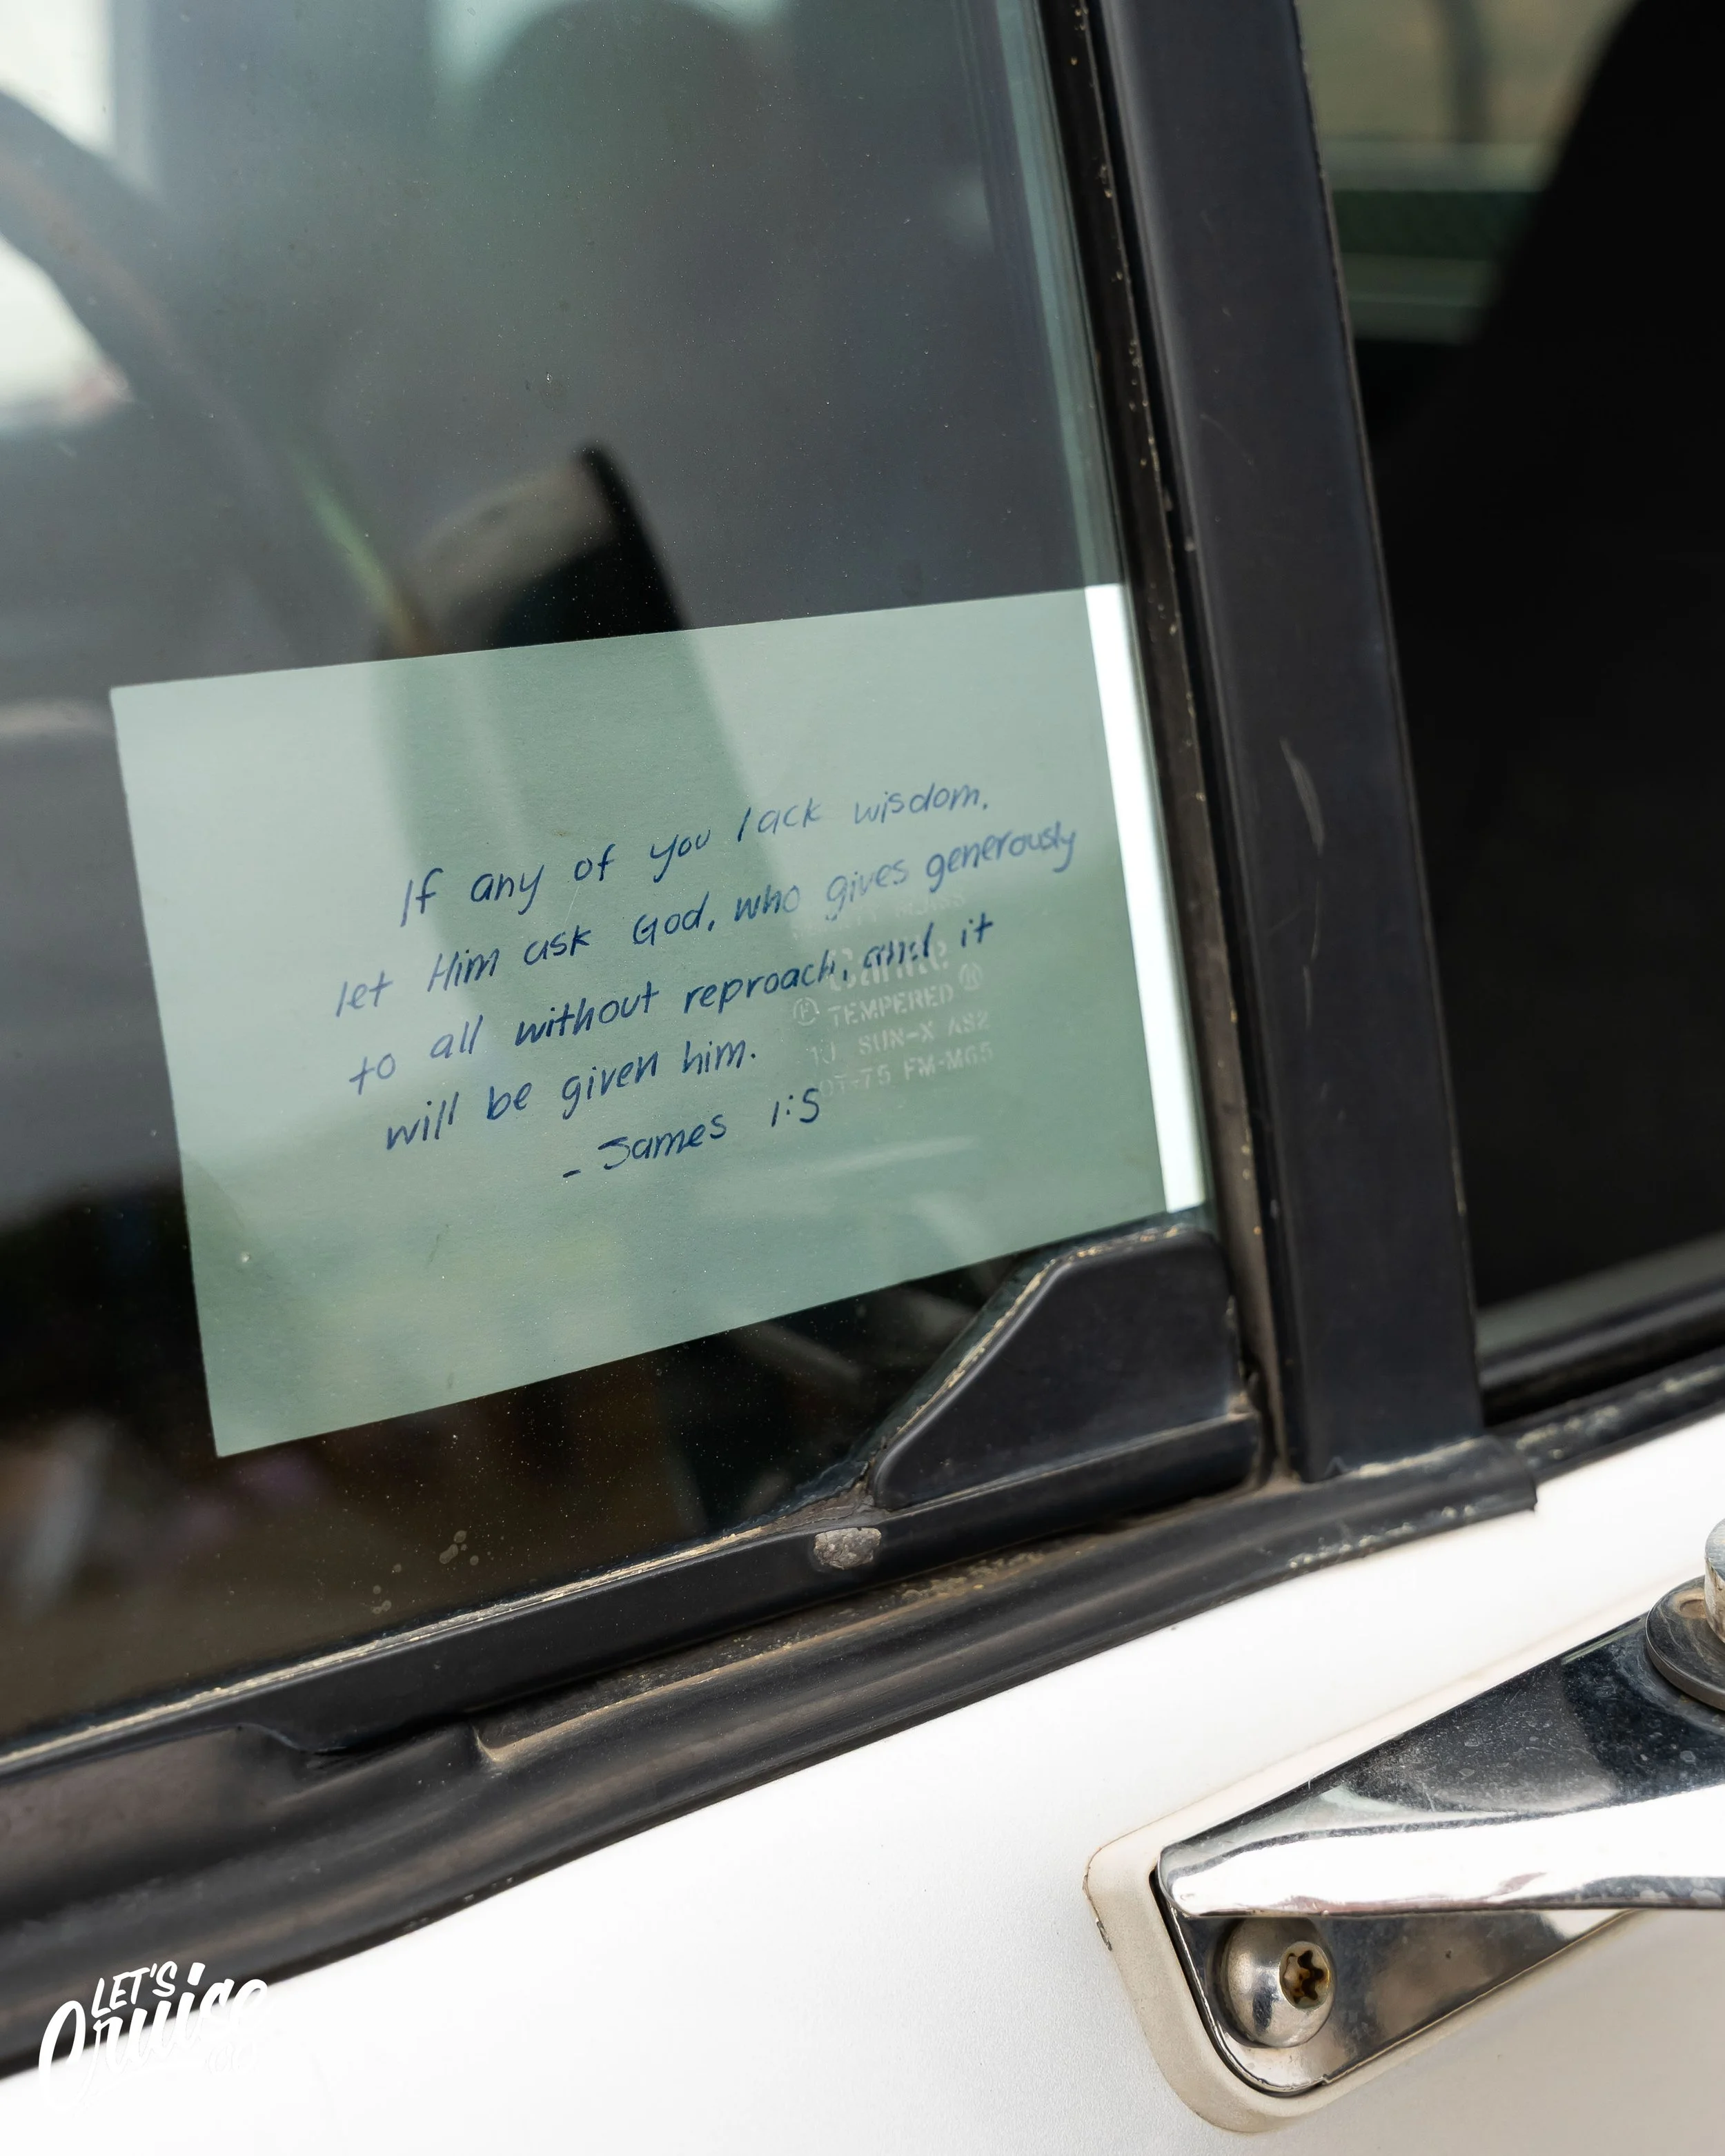 If any of you lack wisdom.
let Him ask God, who gives generously
to all without reproach, and it
will be given him.
- James 1:5
TEMPERED
SUN-X AS2
FM-M65
LET'S
Cruise